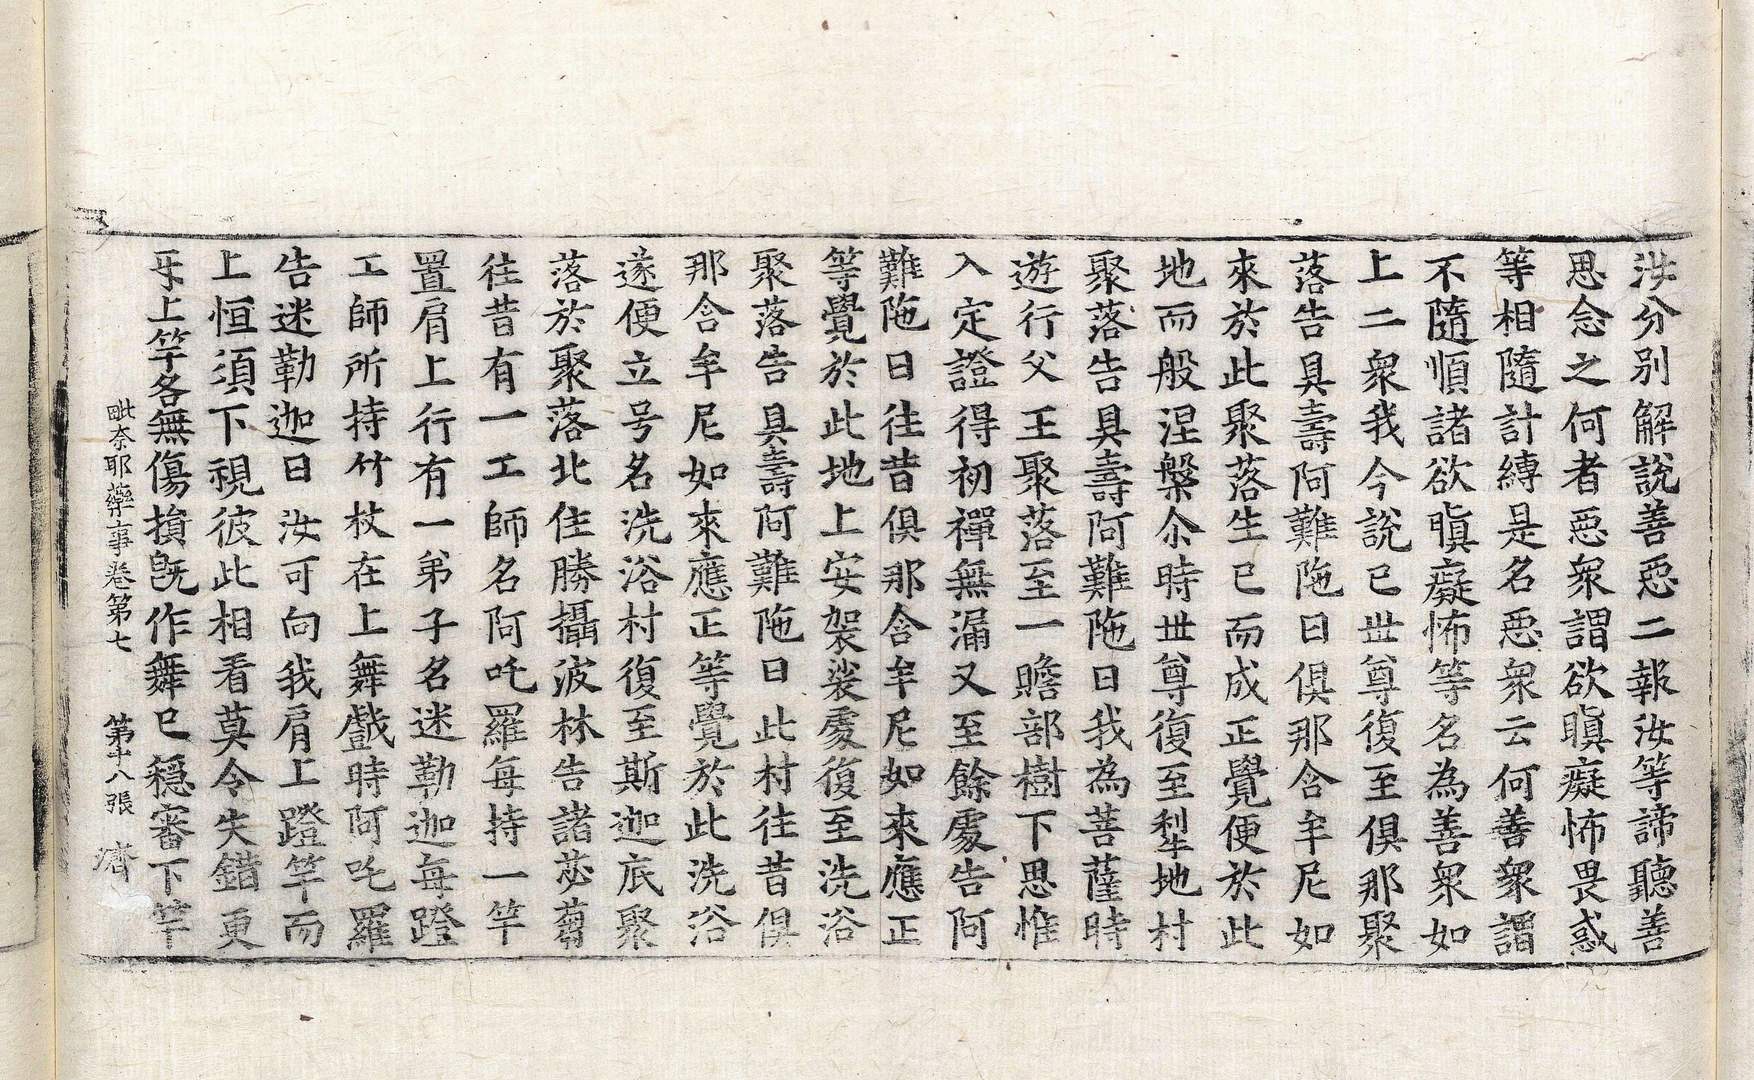 汝分別解說善惡二報汝等諦聽善
思念之何者惡衆謂欲瞋癡怖畏惑
等相隨計縛是名惡衆云何善衆謂
不隨順諸欲瞋癡怖等名為善衆如
上二衆我今說已世尊復至俱那聚
落告具壽阿難陁曰俱那含牟尼如
來於此聚落生已而成正覺便於此
地而般涅槃尒時世尊復至犂地村
聚落告具壽阿難陁曰我為菩薩時
遊行父王聚落至一贍部樹下思惟
入定證得初禪無漏又至餘處告阿
難陁曰往昔俱那含牟尼如來應正
等覺於此地上安袈裟處復至洗浴
聚落告具壽阿難陁曰此村往昔俱
那含牟尼如來應正等覺於此洗浴
遂便立号名洗浴村復至斯迦底聚
落於聚落北住勝攝波林告諸苾蒭
往昔有一工師名阿吒羅每持一竿
置肩上行有一弟子名迷勒迦每蹬
工師所持竹杖在上舞戲時阿吒羅
告迷勒迦曰汝可向我肩上蹬竿而
上恒須下視彼此相看莫令失錯更
㸦上竿各無傷損旣作舞已穩審下竿
毗奈耶藥事卷第七 第十八張 濟